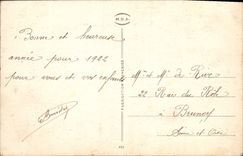 Bonne et heureuse
année pour 1922
pour vous et vos enfants
Mr et Me de Rive
22 Rue du Rôle
à Brunoy
Seine et Oise